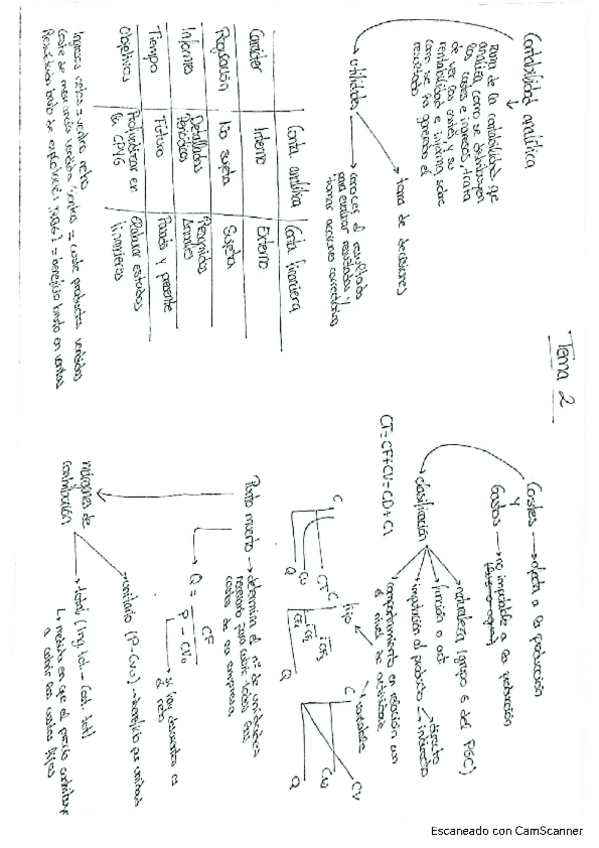 Tema 2
Contabilidad analítica
rama de la contabilidad que
analiza como se distribuyen
los costes e ingresos, trata
de ver los costes y su
rentabilidad e informa sobre
como se ha generado el
resultado
utilidades
toma de decisiones
conocer el resultado
para evaluar resultados y
tomar acciones correctivas
Conta. analítica Conta. financiera
Carácter Interno Externo
Regulación No sujeta Sujeta
Informes Detallados Periódicos Resumidos Anuales
Tiempo Futuro Pasado y presente
Objetivos Profundizar en la CPYG Elaborar estados financieros
Ingresos netos = ventas netas
Coste de mercancía vendida = coste productos vendidos
Resultado bruto de explotación = beneficio bruto en ventas
Costes → afecta a la producción
y
Gastos → no imputable a la producción
clasificación
naturaleza (grupo 6 del PGC)
función o act
imputación al producto
directo
indirecto
comportamiento en relación con
el nivel de actividad
fijo
variable
CT = CF + CV = CD + CI
C
CT
CU
Q
C
CF1
CF2
CF3
Q
C
CV
CU
Q
Punto muerto → determina el nº de unidades
necesario para cubrir todos los
costes de la empresa
Q = CF
P - CVu
si hay descuentos es
el neto
márgenes de
contribución
unitario (P-CVu) → beneficio por unidad
total (Ing. tot. - Cost. tot)
medida en que el precio contribuye
a cubrir los costes fijos
Escaneado con CamScanner